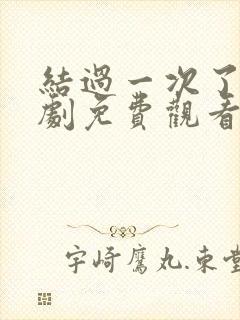 結過一次了
劇免費觀看
宇崎鷹丸.東堂